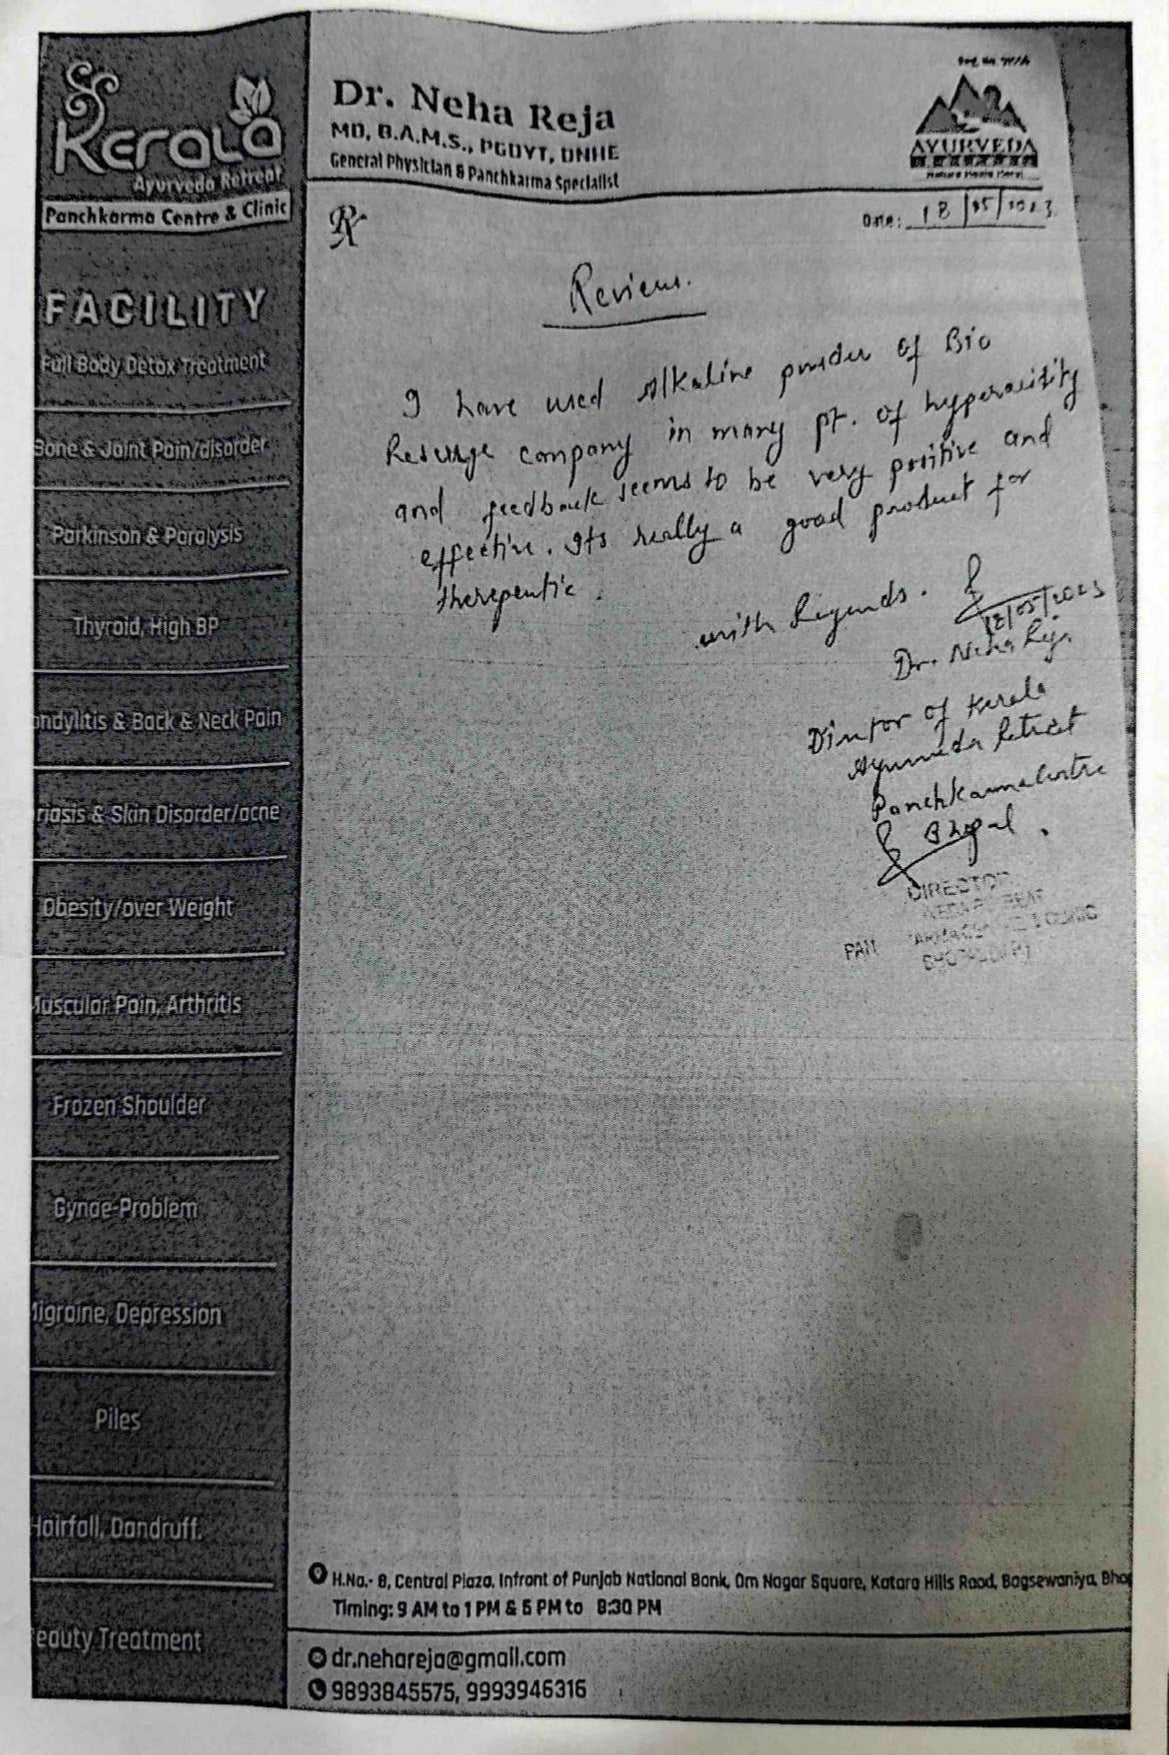 Kerala
Ayurveda Retreat
Panchkarma Centre & Clinic
FACILITY
Full Body Detox Treatment
Bone & Joint Pain/disorder
Parkinson & Paralysis
Thyroid, High BP
ondylitis & Back & Neck Pain
riasis & Skin Disorder/acne
Obesity/over Weight
Muscular Pain, Arthritis
Frozen Shoulder
Gynae-Problem
Migraine, Depression
Piles
Hairfall, Dandruff.
Beauty Treatment
Dr. Neha Reja
MD, B.A.M.S., PGDYT, DNHE
General Physician & Panchkarma Specialist
AYURVEDA
Date: 18/05/2023
Rx
Review.
I have used Alkaline powder of Bio
Resurge company in many pt. of hyperacidity
and feedback seems to be very positive and
effective. Its really a good product for
therepentic.
with Regards.
18/05/2023
Dr. Neha Reja
Director of Kerala
Ayurveda Retreat
Panchkarma Centre
Bhopal.
DIRECTOR
H.No.- 8, Central Plaza, Infront of Punjab National Bank, Om Nagar Square, Katara Hills Road, Bagsewaniya, Bhop
Timing: 9 AM to 1 PM & 5 PM to 8:30 PM
dr.nehareja@gmail.com
9893845575, 9993946316